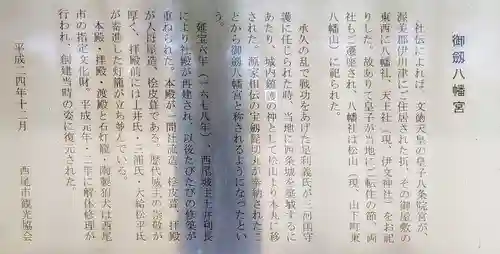 御劔八幡宮
社伝によれば、文徳天皇の皇子八条院宮が、
渥美郡伊川津にご住居された折、その御屋敷の
東西に八幡社、天王社（現、伊文神社）をお祀
りした。故ありて皇子が当地にご転住の節、両
社もご遷座され、八幡社は松山（現、山下町東
八幡山）に祀られた。
承久の乱で戦功をあげた足利義氏が三河国守
護に任じられた時、当地に西条城を築城するに
あたり、城内鎮護の神として松山より本丸に移
された。源家相伝の宝劔髭切丸が奉納されたこ
とから御劔八幡宮と称されるようになったとい
う。
延宝六年（一六七八年）、西尾城主土井利長
により社殿が再建され、以後たびたびの修築が
重ねられた。本殿が一間社流造、桧皮葺、拝殿
が入母屋造、桧皮葺である。歴代城主の崇敬が
厚く、拝殿前には土井氏・三浦氏・大給松平氏
が寄進した灯籠が立ち並んでいる。
本殿・拝殿・渡殿と石灯籠・陶製狛犬は西尾
市の指定文化財。平成元年・二年に解体修理が
行われ、創建当時の姿に復元された。
平成二四年十二月
西尾市観光協会